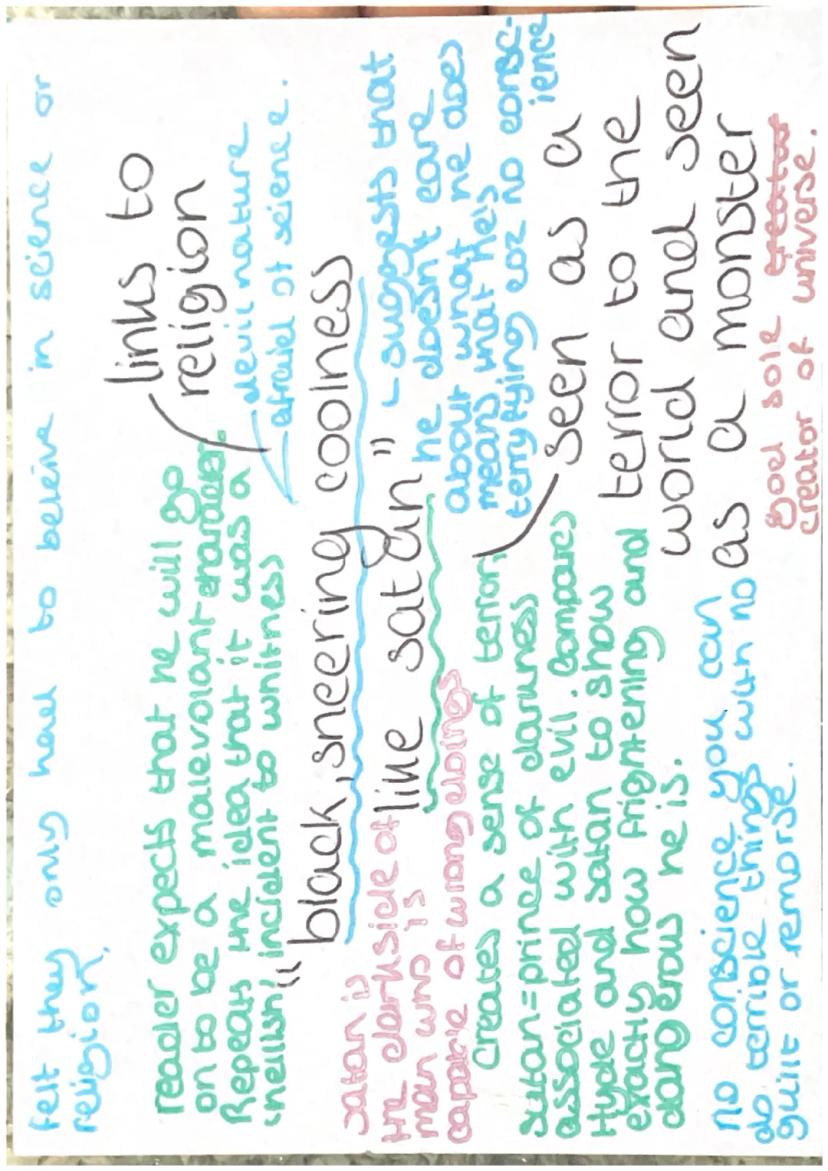 felt they only had to beleive in science or
religion.
links to
religion
devil nature
afraid of science.
reader expects that he will go
on to be a malevolant character.
Repeats the idea that it was a
'hellish' incident to whitness
"black, sneering coolness
like satan"
- suggests that
he doesn't care
about what he does
means that he's
terryfying coz no consc-
ience
satan is
the darkside of
man who is
capable of wrong doings
creates a sense of terror.
Satan = prince of darkness
associated with evil. Compares
Hyde and satan to show
exactly how frightening and
dangerous he is.
seen as a
terror to the
world and seen
as a monster
no conscience you can
do terrible things with no
guilt or remorse.
god sole creator
creator of universe.